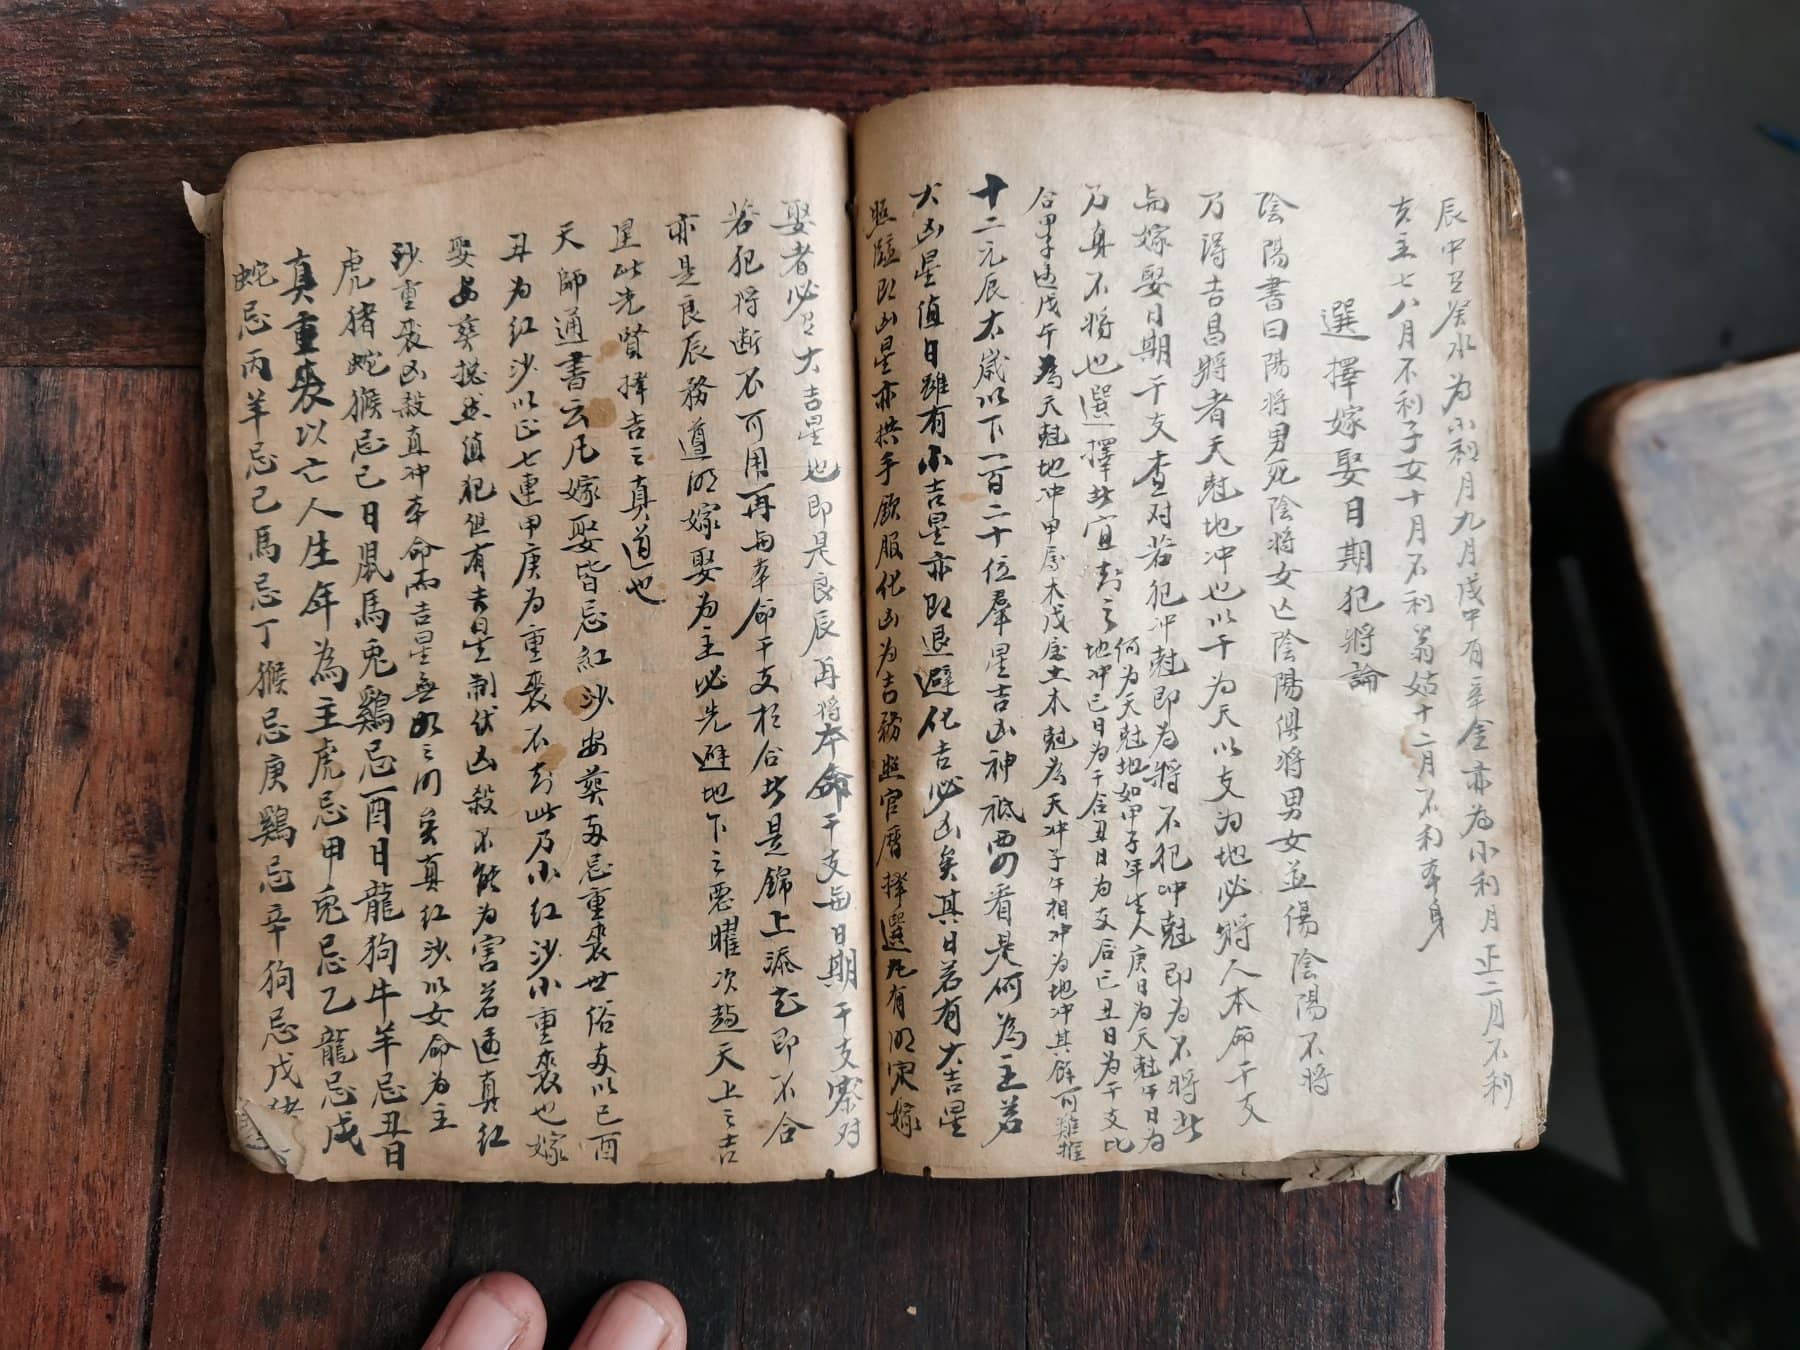 辰中癸水為小利月九月戌中有辛金亦為小利月正二月不利
亥主七八月不利子女十月不利翁姑十二月不利本身
選擇嫁娶日期犯將論
陰陽書曰陽將男死陰將女亡陰陽俱將男女並傷陰陽不將
乃得吉昌將者天尅地冲也以干為天以支為地必將人本命干支
与嫁娶日期干支查对若犯冲尅即為將不犯冲尅即為不將此
乃身不將也選擇此宜
何為天尅地如甲子年生人庚日為天尅午日為
地冲己日為干合丑日為支合己丑日為干支比
合甲子遇戊午為天尅地冲甲屬木戊屬土木尅為天冲子午相冲為地冲其餘可類推
十二元辰太歲以下一百二十位羣星吉凶神祗要看是何為主若
大凶星值日雖有小吉星亦即退避化吉必凶矣其日若有大吉星
照臨即凶星亦拱手欽服化凶為吉務照官曆擇選凡有明定嫁
娶者必大吉星也即是良辰再將本命干支与日期干支察对
若犯將断不可用再与本命干支相合此是錦上添花即不合
亦是良辰務遵明嫁娶為主必先避地下之惡曜次趋天上之吉
星此先賢擇吉之真道也
天師通書云凡嫁娶皆忌紅沙安葬每忌重喪世俗每以巳酉
丑為紅沙以正七連甲庚為重喪不知此乃小紅沙小重喪也嫁
娶安葬縂然值犯但有吉星制伏凶殺不能為害若遇真紅
沙重喪凶殺真冲本命而吉星無如之何矣真紅沙以女命為主
虎猪蛇猴忌巳日鼠馬兎鷄忌酉日龍狗牛羊忌丑日
真重喪以亡人生年為主虎忌甲兎忌乙龍忌戊
蛇忌丙羊忌己馬忌丁猴忌庚鷄忌辛狗忌戊猪